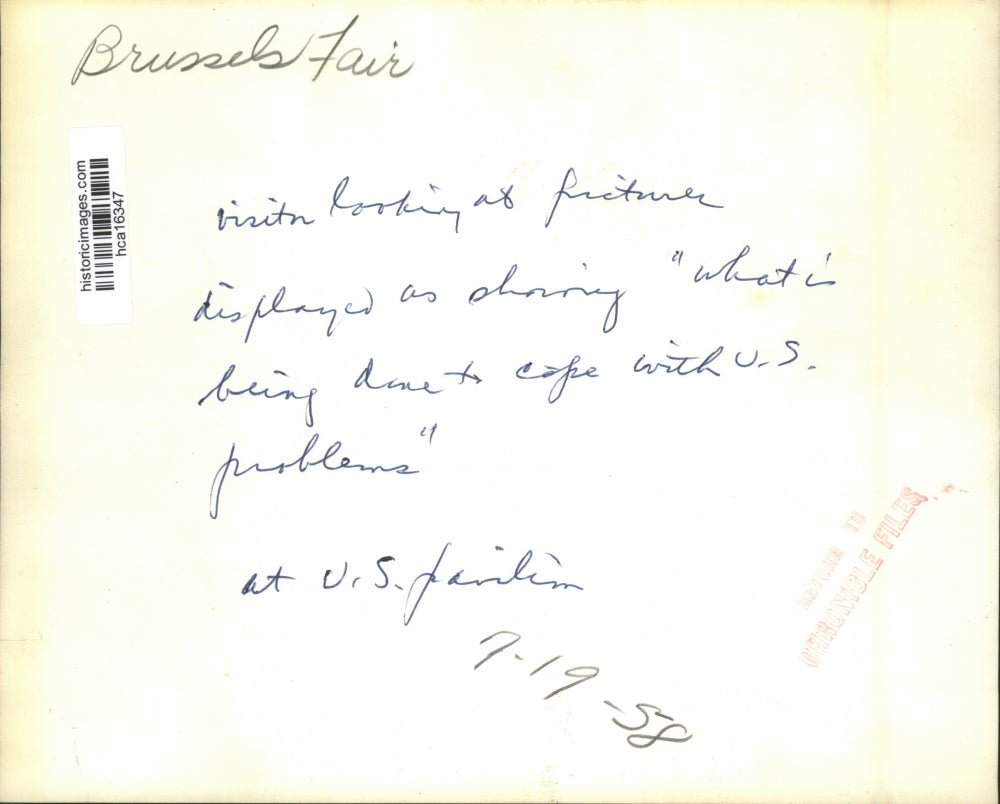 Brussels Fair
historicimages.com
hca16347
visitor looking at pictures
displayed as showing "what is
being done to cope with U.S.
problems"
at U.S. pavilion
7-19-58
RETURN TO
CHRONICLE FILES